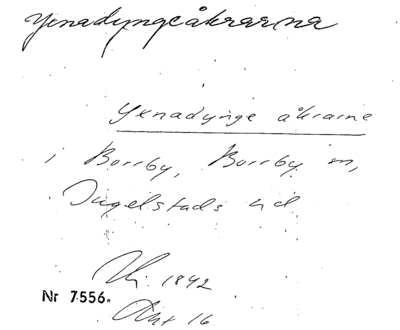 Yxnadyngeåkrarna
Yxnadynge åkrarne
i Borrby, Borrby sn,
Ingelstads hd
1842
Nr 7556.
Akt 16